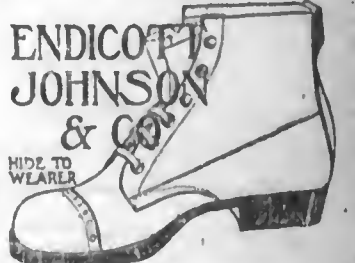 ENDICOTT
JOHNSON
& CO
HIDE TO
WEARER